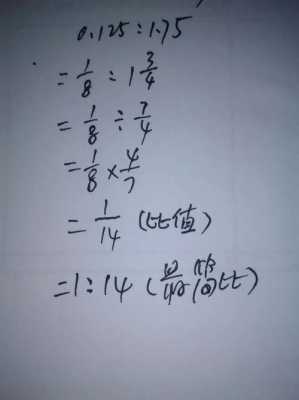 0.125:1.75
=1/8:1 3/4
=1/8÷7/4
=1/8×4/7
=1/14 (比值)
=1:14 (最简比)